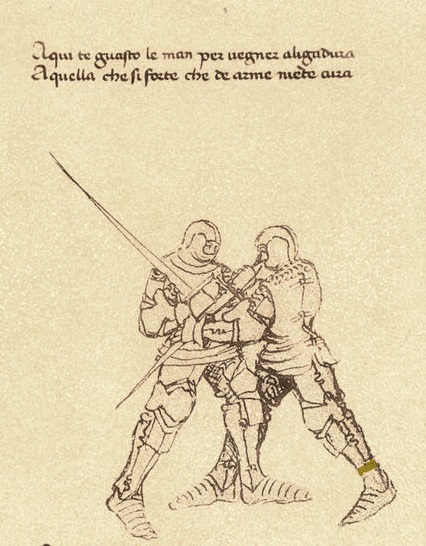 Aqui te guasto le man per uegner aligadura
Aquella che si forte che de arme niẽte cura